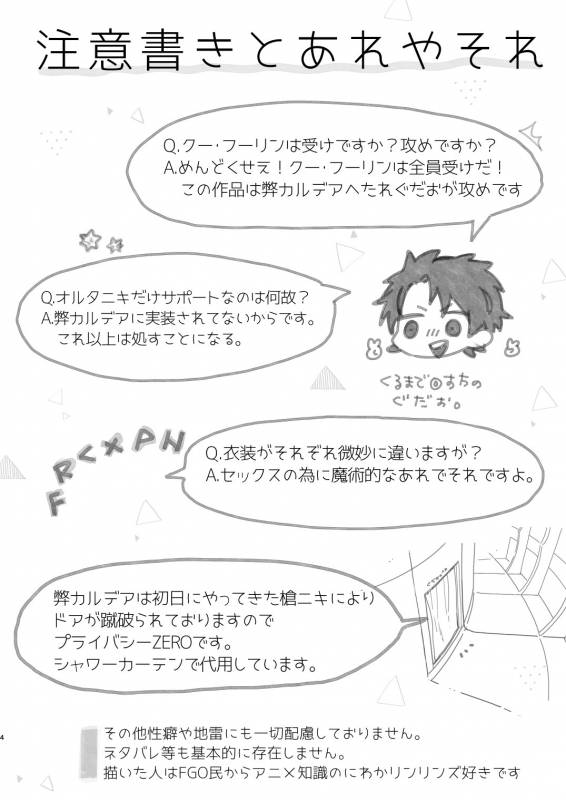 注意書きとあれやそれ
Q.クー・フーリンは受けですか？攻めですか？
A.めんどくせえ！クー・フーリンは全員受けだ！
この作品は弊カルデアへたれぐだおが攻めです
Q.オルタニキだけサポートなのは何故？
A.弊カルデアに実装されてないからです。
これ以上は処すことになる。
ぐだお。
Q.衣装がそれぞれ微妙に違いますが？
A.セックスの為に魔術的なあれでそれですよ。
弊カルデアは初日にやってきた槍ニキにより
ドアが蹴破られておりますので
プライバシーZEROです。
シャワーカーテンで代用しています。
その他性癖や地雷にも一切配慮しておりません。
ネタバレ等も基本的に存在しません。
描いた人はFGO民からアニメ知識のにわかリンリンズ好きです
4